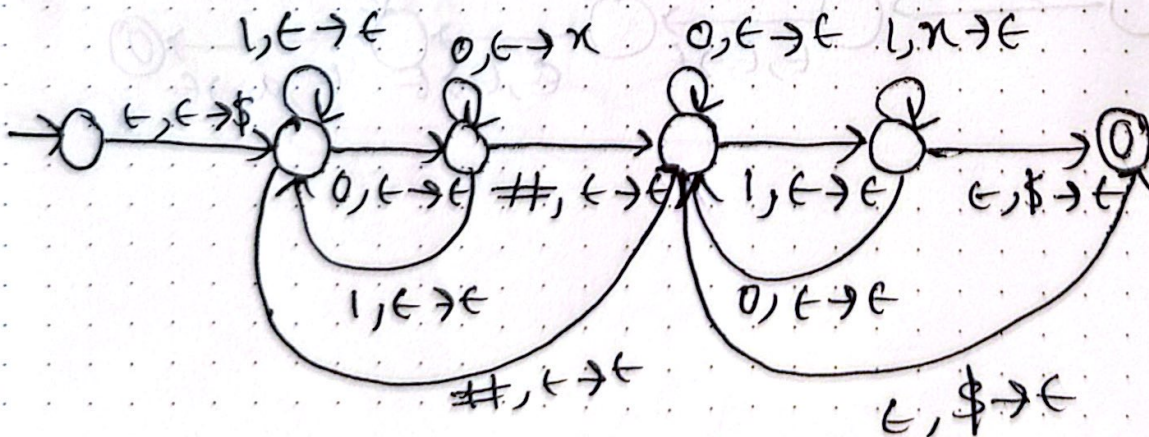 1,ϵ→ϵ 0,ϵ→x 0,ϵ→ϵ 1,x→ϵ
ϵ,ϵ→$
0,ϵ→ϵ #,ϵ→ϵ 1,ϵ→ϵ ϵ,$→ϵ
1,ϵ→ϵ 0,ϵ→ϵ
#,ϵ→ϵ ϵ,$→ϵ